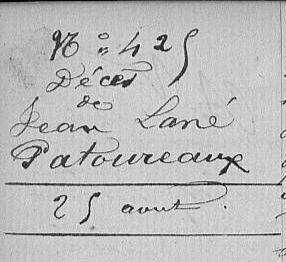 N° 425
Décès
de
Jean Lané
Patoureaux
25 aout.